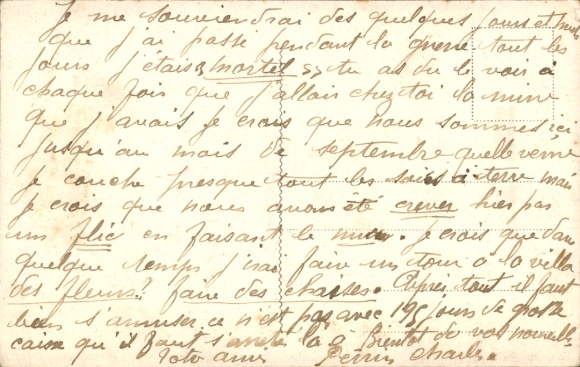 Je me souviendrai des quelques jours et nuits
que j'ai passé pendant la guerre tout les
jours j'étais "mortel" tu as du le voir à
chaque fois que j'allais chez toi la mine
que j'avais je crois que nous sommes ici
jusqu'au mois de septembre quelle veine
je couche presque tout les soirs à terre mais
je crois que nous avons été crever hier pas
un flic en faisant le mur. Je crois que dans
quelque temps j'irai faire un tour à la villa
des fleurs? faire des chaises. Après tout il faut
bien s'amuser ce n'est pas avec 195 jours de grosse
caisse qu'il faut s'arrêter là à Bientôt de vos nouvelles
Toto ami Perrin Charles.